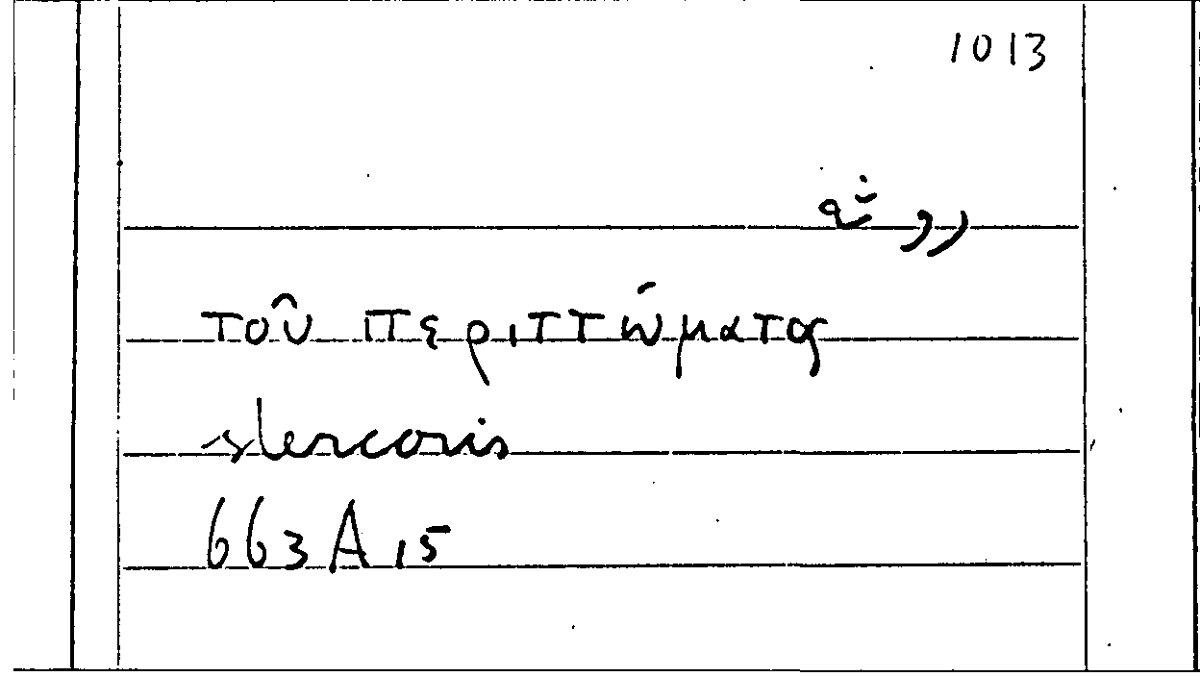 1013
روثه
τοῦ περιττώματος
stercoris
663A15